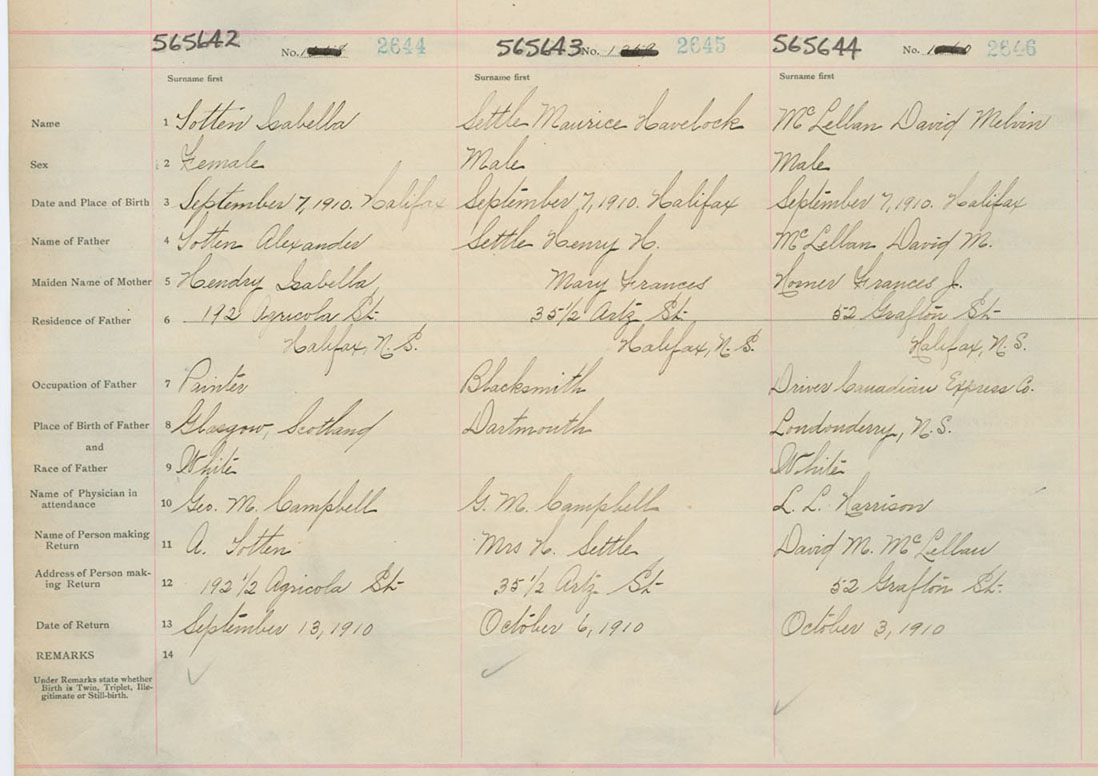 565642 No. 2644 565643 No. 2645 565644 No. 2646
Surname first Surname first Surname first
Name 1 Totten Isabella Settle Maurice Havelock McLellan David Melvin
Sex 2 Female Male Male
Date and Place of Birth 3 September 7, 1910. Halifax September 7, 1910. Halifax September 7, 1910. Halifax
Name of Father 4 Totten Alexander Settle Henry H. McLellan David M.
Maiden Name of Mother 5 Hendry Isabella Mary Frances Horner Frances J.
Residence of Father 6 192 Agricola St. 35 1/2 Artz St. 52 Grafton St.
Halifax, N.S. Halifax, N.S. Halifax, N.S.
Occupation of Father 7 Painter Blacksmith Driver Canadian Express Co.
Place of Birth of Father 8 Glasgow, Scotland Dartmouth Londonderry, N.S.
and
Race of Father 9 White White
Name of Physician in
attendance 10 Geo. M. Campbell G. M. Campbell L. L. Harrison
Name of Person making
Return 11 A. Totten Mrs H. Settle David M. McLellan
Address of Person mak-
ing Return 12 192 1/2 Agricola St. 35 1/2 Artz St. 52 Grafton St.
Date of Return 13 September 13, 1910 October 6, 1910 October 3, 1910
REMARKS 14
Under Remarks state whether
Birth is Twin, Triplet, Ille-
gitimate or Still-birth.